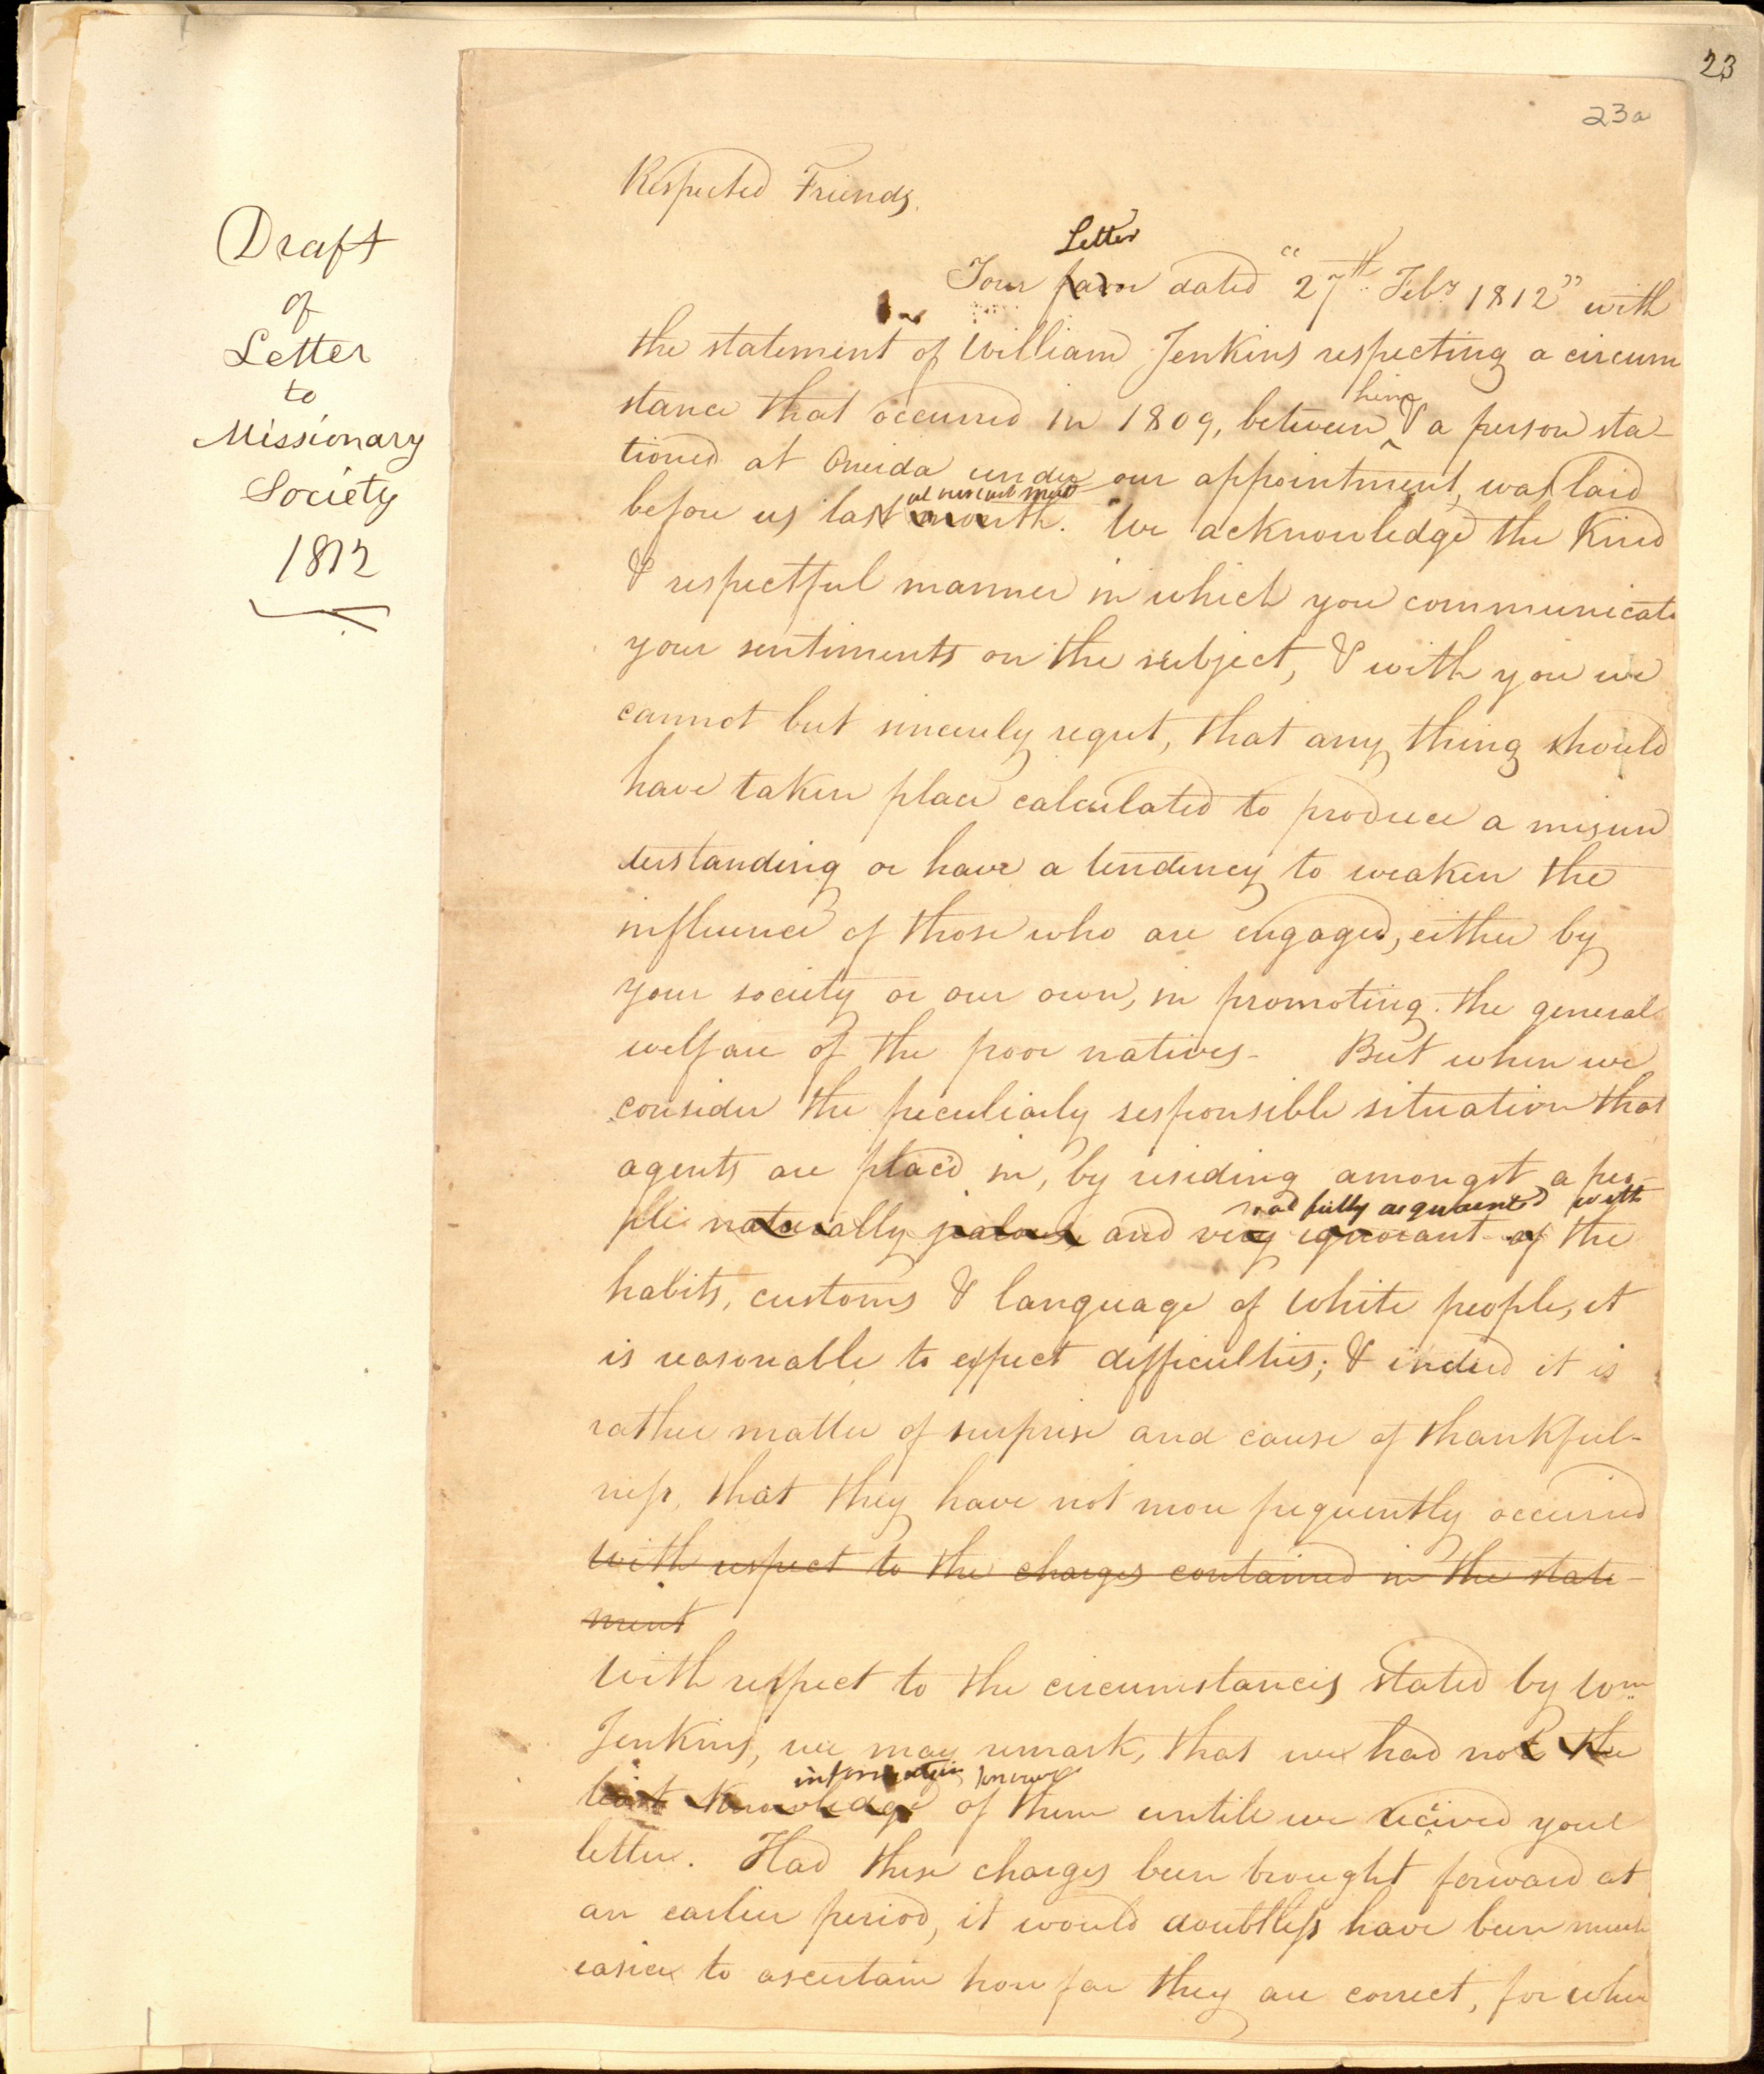 23
23a
Draft
of
Letter
to
Missionary
Society
1812
Respected Friends,
Letter
Your favor dated "27th. Feby 1812" with
the statement of William Jenkins respecting a circum
stance that occurred in 1809, between him & a person sta-
tioned at Oneida under our appointment, was laid
before us last month. We acknowledge the kind
& respectful manner in which you communicate
your sentiments on the subject, & with you we
cannot but sincerely regret, that any thing should
have taken place calculated to produce a misun
derstanding or have a tendency to weaken the
influence of those who are engaged, either by
your society or our own, in promoting the general
welfare of the poor natives - But when we
consider the peculiarly responsible situation that
agents are plac'd in, by residing amongst a peo-
not fully acquainted with
ple naturally jealous and very ignorant of the
habits, customs & language of white people, it
is reasonable to expect difficulties; & indeed it is
rather matter of surprise and cause of thankful-
ness, that they have not more frequently occurred
with respect to the charges contained in the state-
ment
With respect to the circumstances stated by Wm
Jenkins, we may remark, that we had not the
information
least knowledge of them untill we received your
letter. Had these charges been brought forward at
an earlier period, it would doubtless have been much
easier to ascertain how far they are correct, for when